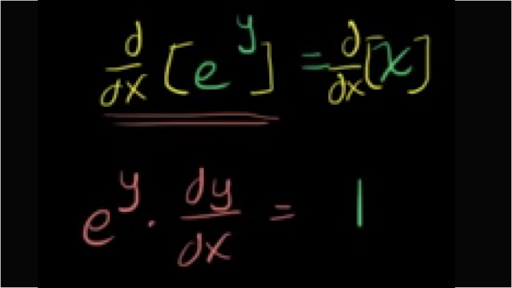 d/dx [e^y] = d/dx [x]
e^y · dy/dx = 1